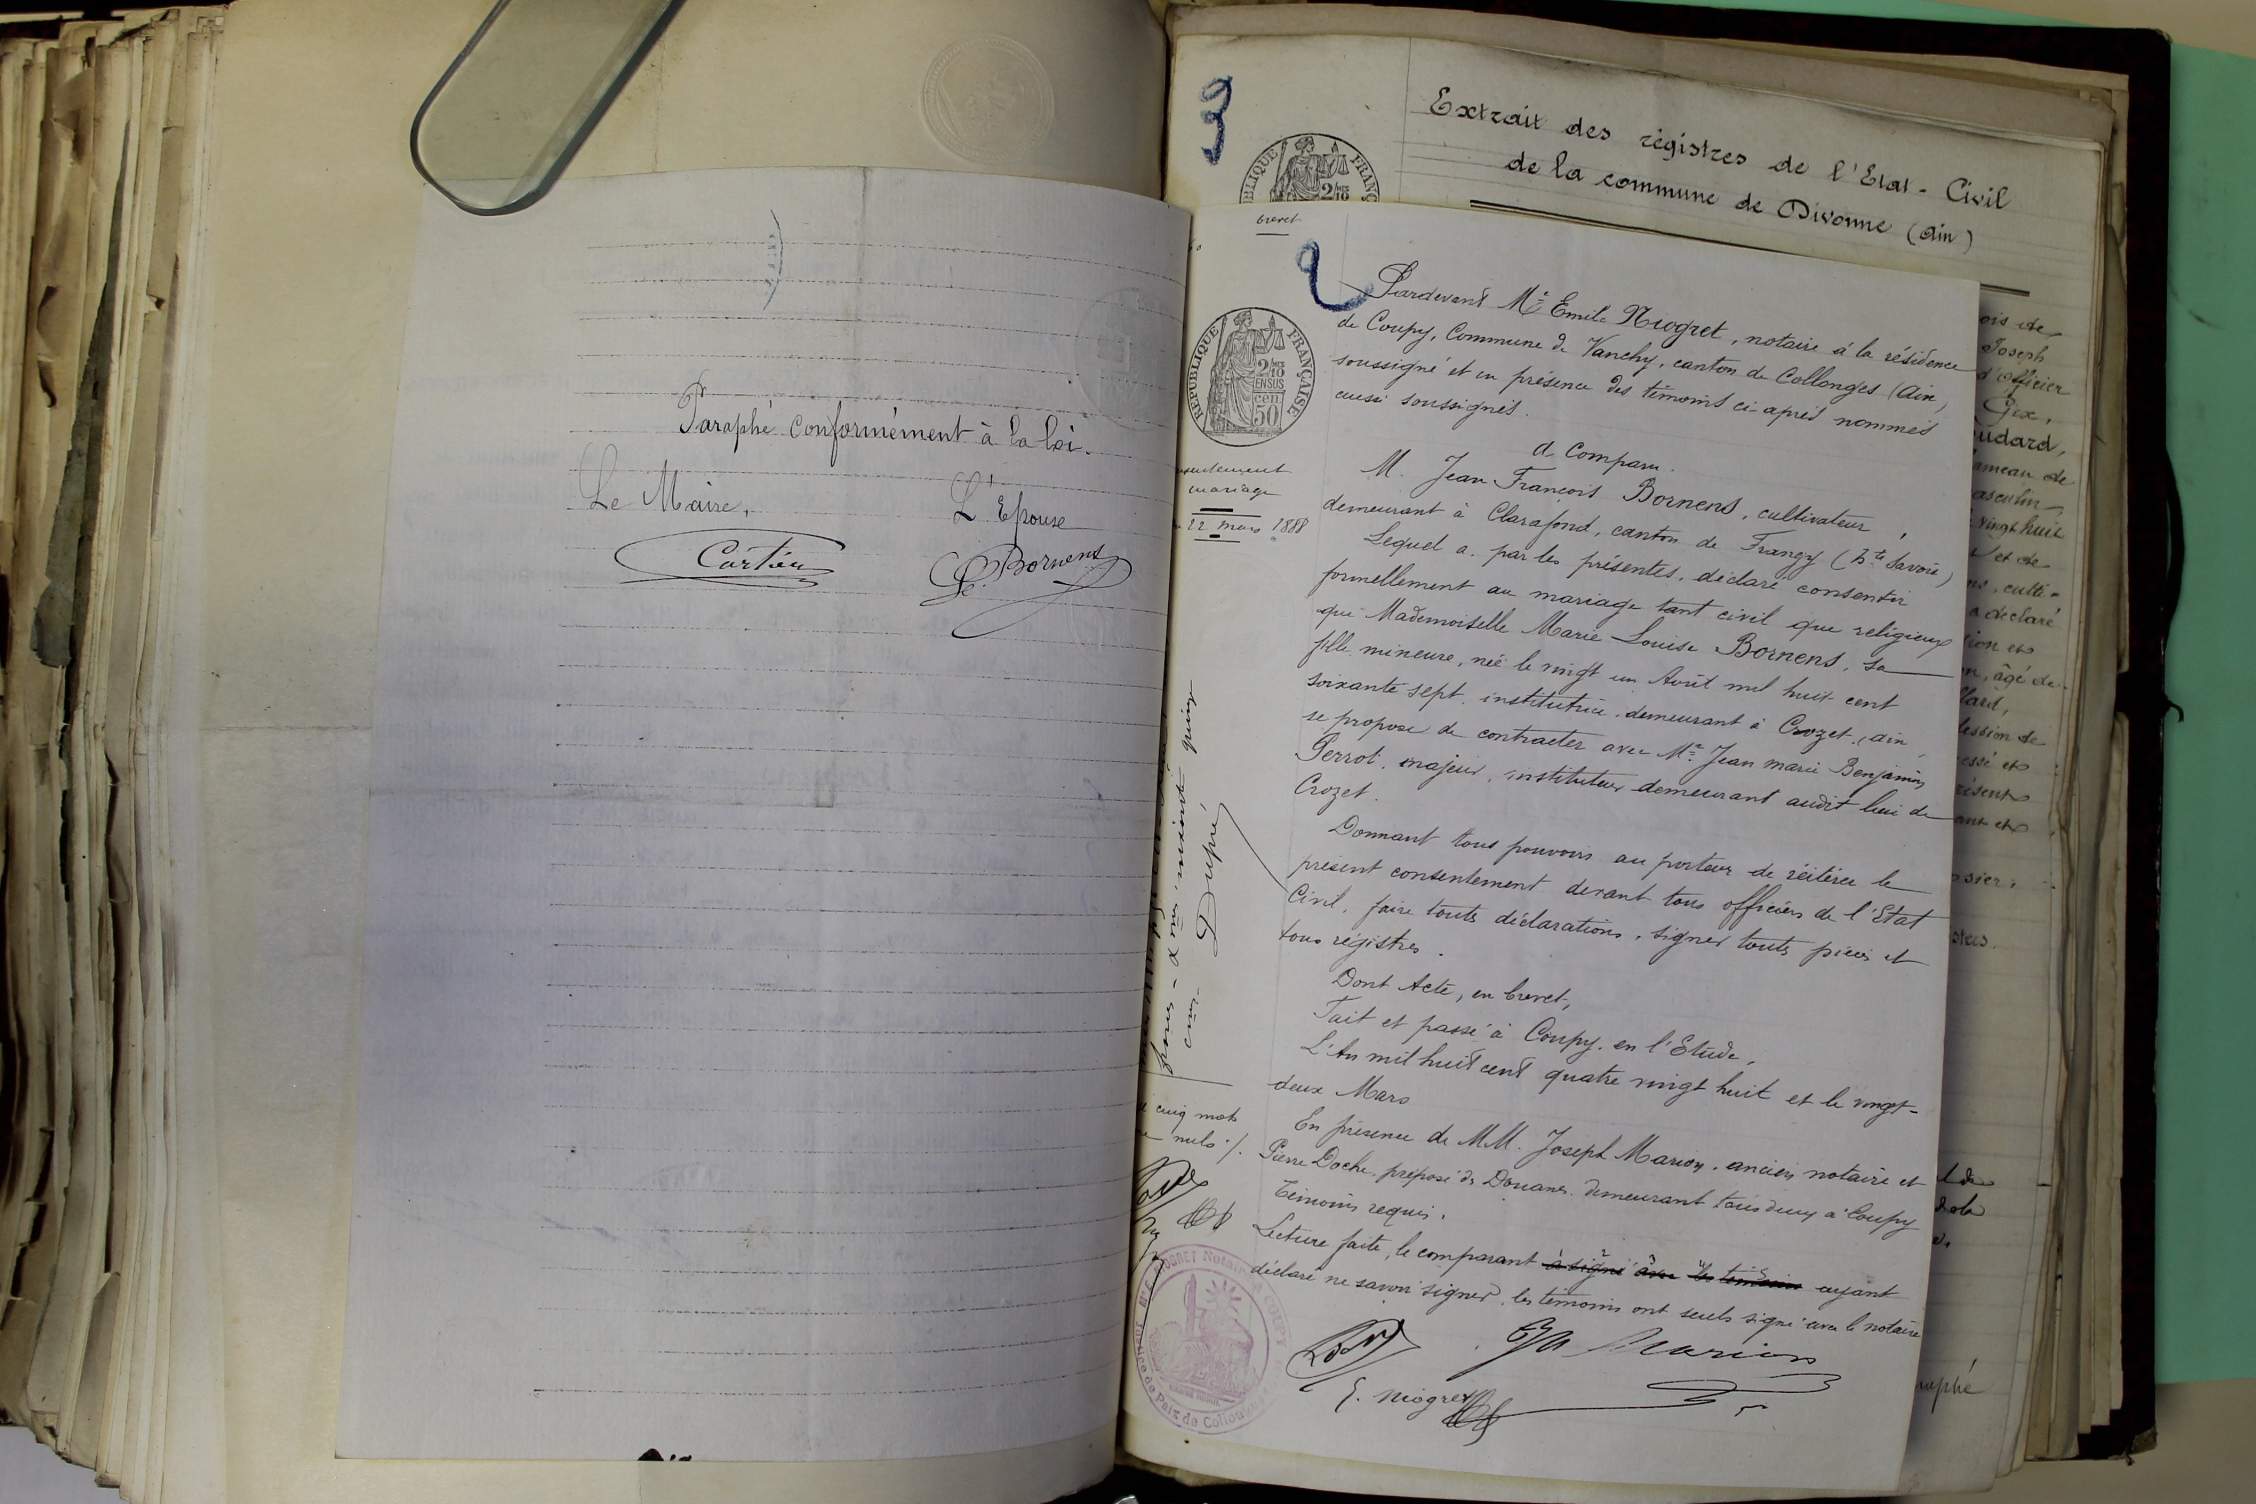 Paraphé conformément à la loi.
Le Maire,
L'Epouse
Cartier
Bornens
3
Extrait des régistres de l'Etat-Civil
de la commune de Divonne (Ain)
brevet
2
RÉPUBLIQUE FRANÇAISE
2/10
EN SUS
50 cen
mariage
22 mars 1888
Pardevant Me Emile Niogret, notaire à la résidence
de Coupy, Commune de Vanchy, canton de Collonges (Ain)
soussigné et en présence des témoins ci-après nommés
aussi soussignés.
a Comparu.
M. Jean François Bornens, cultivateur,
demeurant à Clarafond, canton de Frangy (Hte Savoie)
Lequel a, par les présentes, déclaré consentir
formellement au mariage tant civil que religieux
que Mademoiselle Marie Louise Bornens, sa
fille mineure, née le vingt un Avril mil huit cent
soixante sept, institutrice, demeurant à Crozet, (Ain,
se propose de contracter avec Mr Jean marie Benjamin
Perrot, majeur, instituteur demeurant audit lieu de
Crozet.
Donnant tous pouvoirs au porteur de réitérer le
présent consentement devant tous officiers de l'Etat
Civil, faire toutes déclarations, signer toutes pièces et
tous régistres.
Dont Acte, en brevet,
Fait et passé à Coupy, en l'Etude,
L'An mil huit cent quatre vingt huit et le vingt-
deux Mars
En présence de MM. Joseph Marion, ancien notaire et
Pierre Doche, préposé des Douanes, demeurant tous deux à Coupy
témoins requis.
Lecture faite, le comparant à signé avec les témoins ayant
déclaré ne savoir signer, les témoins ont seuls signé avec le notaire
Marion
E. Niogret
Dupré
cinq mots
nuls ./.
Justice de Paix de Collonges
ois de
Joseph
d'officier
Gex,
oudard,
ameau de
asculin,
vingt huit
et de
ns, culti-
a déclaré
n, âgé de